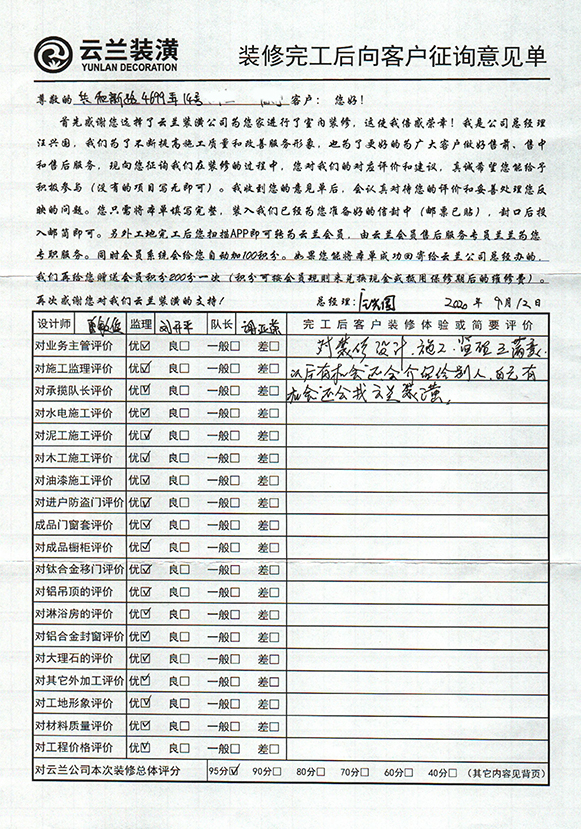 云兰装潢
YUNLAN DECORATION
装修完工后向客户征询意见单
尊敬的 新 路4699弄14号 客户：您好！
首先感谢您选择了云兰装潢公司为您家进行了室内装修，这使我倍感荣幸！我是公司总经理
汪兴国，我们为了不断提高施工质量和改善服务形象，也为了更好的为广大客户做好售前、售中
和售后服务，现向您征询我们在装修的过程中，您对我们的对应评价和建议，真诚希望您能给予
积极参与（没有的项目写无即可）。我收到您的意见单后，会认真对待您的评价和妥善处理您反
映的问题。您只需将本单填写完整，装入我们已经为您准备好的信封中（邮票已贴），封口后投
入邮筒即可。另外工地完工后您扫描APP即可转为云兰会员，由云兰会员售后服务专员兰兰为您
专职服务。同时会员系统会给您自动加100积分。如果您能将本单成功回寄给云兰公司总经办的，
我们再给您赠送会员积分200分一次（积分可按会员规则来兑换现金或抵用保修期后的维修费）。
再次感谢您对我们云兰装潢的支持！ 总经理： 2020 年 9月12日
设计师 监理 刘开平 队长 谢亚荣 完工后客户装修体验或简要评价
对业务主管评价 优☑ 良□ 一般□ 差□ 对装修设计、施工、监理
对施工监理评价 优☑ 良□ 一般□ 差□ 以后有机会还会介绍给别人，自己有
对承揽队长评价 优☑ 良□ 一般□ 差□ 机会还会找云兰装潢。
对水电施工评价 优☑ 良□ 一般□ 差□
对泥工施工评价 优☑ 良□ 一般□ 差□
对木工施工评价 优☑ 良□ 一般□ 差□
对油漆施工评价 优☑ 良□ 一般□ 差□
对进户防盗门评价 优☑ 良□ 一般□ 差□
成品门窗套评价 优☑ 良□ 一般□ 差□
对成品橱柜评价 优☑ 良□ 一般□ 差□
对钛合金移门评价 优☑ 良□ 一般□ 差□
对铝吊顶的评价 优☑ 良□ 一般□ 差□
对淋浴房的评价 优☑ 良□ 一般□ 差□
对铝合金封窗评价 优☑ 良□ 一般□ 差□
对大理石的评价 优☑ 良□ 一般□ 差□
对其它外加工评价 优☑ 良□ 一般□ 差□
对工地形象评价 优☑ 良□ 一般□ 差□
对材料质量评价 优☑ 良□ 一般□ 差□
对工程价格评价 优☑ 良□ 一般□ 差□
对云兰公司本次装修总体评分 95分☑ 90分□ 80分□ 70分□ 60分□ 40分□ （其它内容见背页）